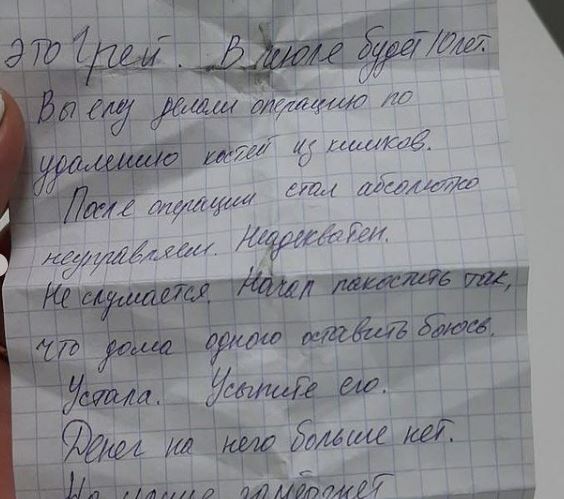 это Грей. В июле будет 10 лет.
Вы ему делали операцию по
удалению костей из кишков.
После операции стал абсолютно
неуправляем. Неадекватен.
Не слушается. Начал пакостить так,
что дома одного оставить боюсь.
Устала. Усыпите его.
Денег на него больше нет.